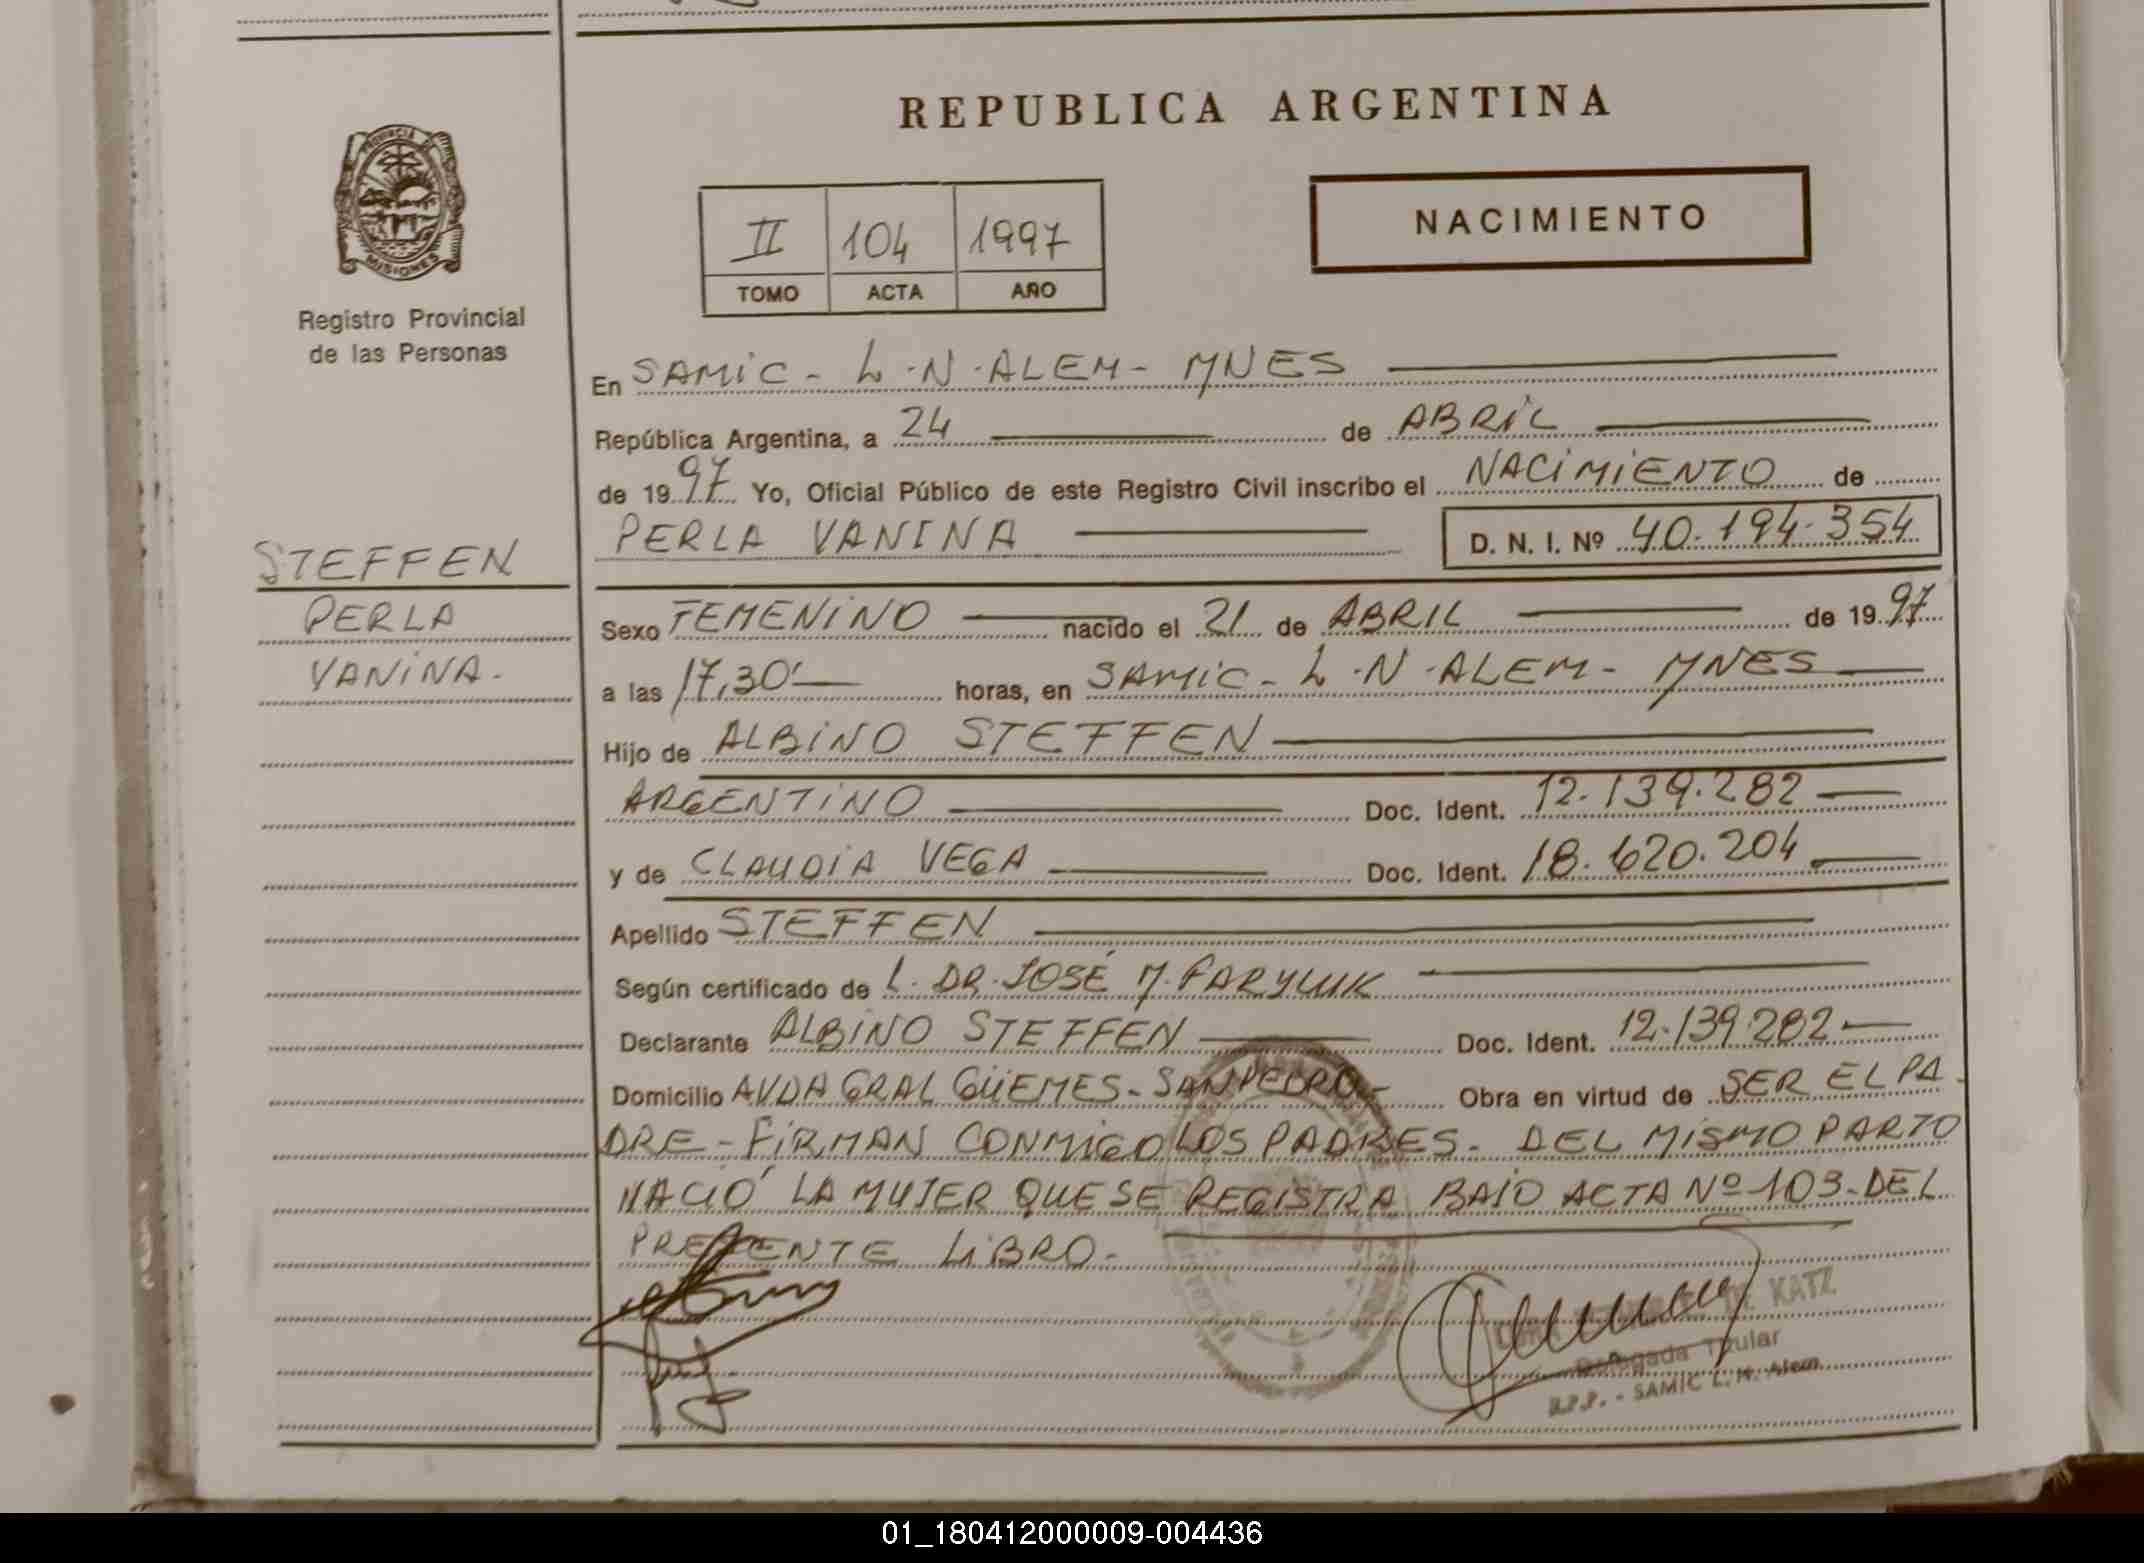 REPUBLICA ARGENTINA
PROVINCIA DE
MISIONES
Registro Provincial
de las Personas
II 104 1997
TOMO ACTA AÑO
NACIMIENTO
En SAMIC - L.N.ALEM - MNES
República Argentina, a 24 de ABRIL
de 1997 Yo, Oficial Público de este Registro Civil inscribo el NACIMIENTO de
PERLA VANINA D. N. I. Nº 40.194.354
STEFFEN
PERLA
VANINA.
Sexo FEMENINO nacido el 21 de ABRIL de 1997
a las 17,30' horas, en SAMIC - L.N.ALEM - MNES
Hijo de ALBINO STEFFEN
ARGENTINO Doc. Ident. 12.139.282
y de CLAUDIA VEGA Doc. Ident. 18.620.204
Apellido STEFFEN
Según certificado de L. DR. JOSÉ M. FARYLUK
Declarante ALBINO STEFFEN Doc. Ident. 12.139.282
Domicilio AVDA GRAL GÜEMES - SAN PEDRO - Obra en virtud de SER EL PA-
DRE - FIRMAN CONMIGO LOS PADRES - DEL MISMO PARTO
NACIÓ LA MUJER QUE SE REGISTRA BAJO ACTA Nº 103 - DEL
PRESENTE LIBRO -
DE KATZ
Delegada Titular
R.P.P. - SAMIC L. N. Alem
01_180412000009-004436